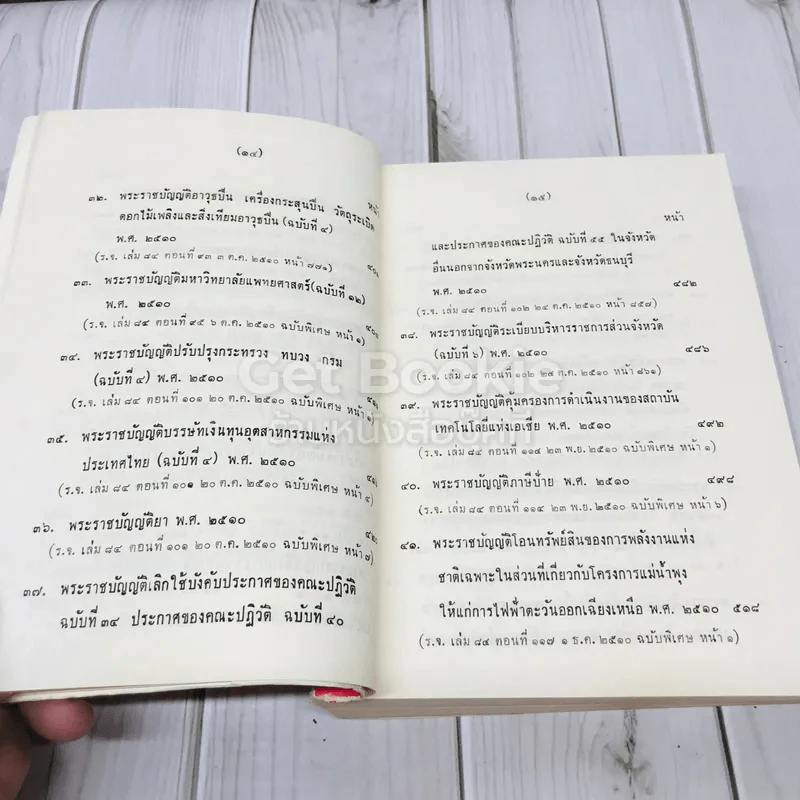 (๑๔)
หน้า
๓๒. พระราชบัญญัติอาวุธปืน เครื่องกระสุนปืน วัตถุระเบิด
ดอกไม้เพลิงและสิ่งเทียมอาวุธปืน (ฉบับที่ ๔)
พ.ศ. ๒๕๑๐
(ร.จ. เล่ม ๘๔ ตอนที่ ๙๓ ๓ ต.ค. ๒๕๑๐ หน้า ๗๗๑)
๓๓. พระราชบัญญัติมหาวิทยาลัยแพทยศาสตร์ (ฉบับที่ ๑๒)
พ.ศ. ๒๕๑๐
(ร.จ. เล่ม ๘๔ ตอนที่ ๙๕ ๖ ต.ค. ๒๕๑๐ ฉบับพิเศษ หน้า ๑)
๓๔. พระราชบัญญัติปรับปรุงกระทรวง ทบวง กรม
(ฉบับที่ ๔) พ.ศ. ๒๕๑๐
(ร.จ. เล่ม ๘๔ ตอนที่ ๑๐๑ ๒๐ ต.ค. ๒๕๑๐ ฉบับพิเศษ หน้า ๑)
๓๕. พระราชบัญญัติบรรษัทเงินทุนอุตสาหกรรมแห่ง
ประเทศไทย (ฉบับที่ ๔) พ.ศ. ๒๕๑๐
(ร.จ. เล่ม ๘๔ ตอนที่ ๑๐๑ ๒๐ ต.ค. ๒๕๑๐ ฉบับพิเศษ หน้า ๔)
๓๖. พระราชบัญญัติยา พ.ศ. ๒๕๑๐
(ร.จ. เล่ม ๘๔ ตอนที่ ๑๐๑ ๒๐ ต.ค. ๒๕๑๐ ฉบับพิเศษ หน้า ๗)
๓๗. พระราชบัญญัติเลิกใช้บังคับประกาศของคณะปฏิวัติ
ฉบับที่ ๓๔ ประกาศของคณะปฏิวัติ ฉบับที่ ๔๐
(๑๕)
หน้า
และประกาศของคณะปฏิวัติ ฉบับที่ ๕๕ ในจังหวัด
อื่นนอกจากจังหวัดพระนครและจังหวัดธนบุรี
พ.ศ. ๒๕๑๐ ๔๘๒
(ร.จ. เล่ม ๘๔ ตอนที่ ๑๐๒ ๒๔ ต.ค. ๒๕๑๐ หน้า ๘๕๗)
๓๘. พระราชบัญญัติระเบียบบริหารราชการส่วนจังหวัด
(ฉบับที่ ๖) พ.ศ. ๒๕๑๐ ๔๘๖
(ร.จ. เล่ม ๘๔ ตอนที่ ๑๐๒ ๒๔ ต.ค. ๒๕๑๐ หน้า ๘๖๑)
๓๙. พระราชบัญญัติคุ้มครองการดำเนินงานของสถาบัน
เทคโนโลยีแห่งเอเซีย พ.ศ. ๒๕๑๐ ๔๙๒
(ร.จ. เล่ม ๘๔ ตอนที่ ๑๑๔ ๒๓ พ.ย. ๒๕๑๐ ฉบับพิเศษ หน้า ๑)
๔๐. พระราชบัญญัติภาษีป้าย พ.ศ. ๒๕๑๐ ๔๙๘
(ร.จ. เล่ม ๘๔ ตอนที่ ๑๑๔ ๒๓ พ.ย. ๒๕๑๐ ฉบับพิเศษ หน้า ๖)
๔๑. พระราชบัญญัติโอนทรัพย์สินของการพลังงานแห่ง
ชาติเฉพาะในส่วนที่เกี่ยวกับโครงการแม่น้ำพุง
ให้แก่การไฟฟ้าตะวันออกเฉียงเหนือ พ.ศ. ๒๕๑๐ ๕๑๘
(ร.จ. เล่ม ๘๔ ตอนที่ ๑๑๗ ๑ ธ.ค. ๒๕๑๐ ฉบับพิเศษ หน้า ๑)
Get Bookie
ร้านหนังสือบุ๊คกี้